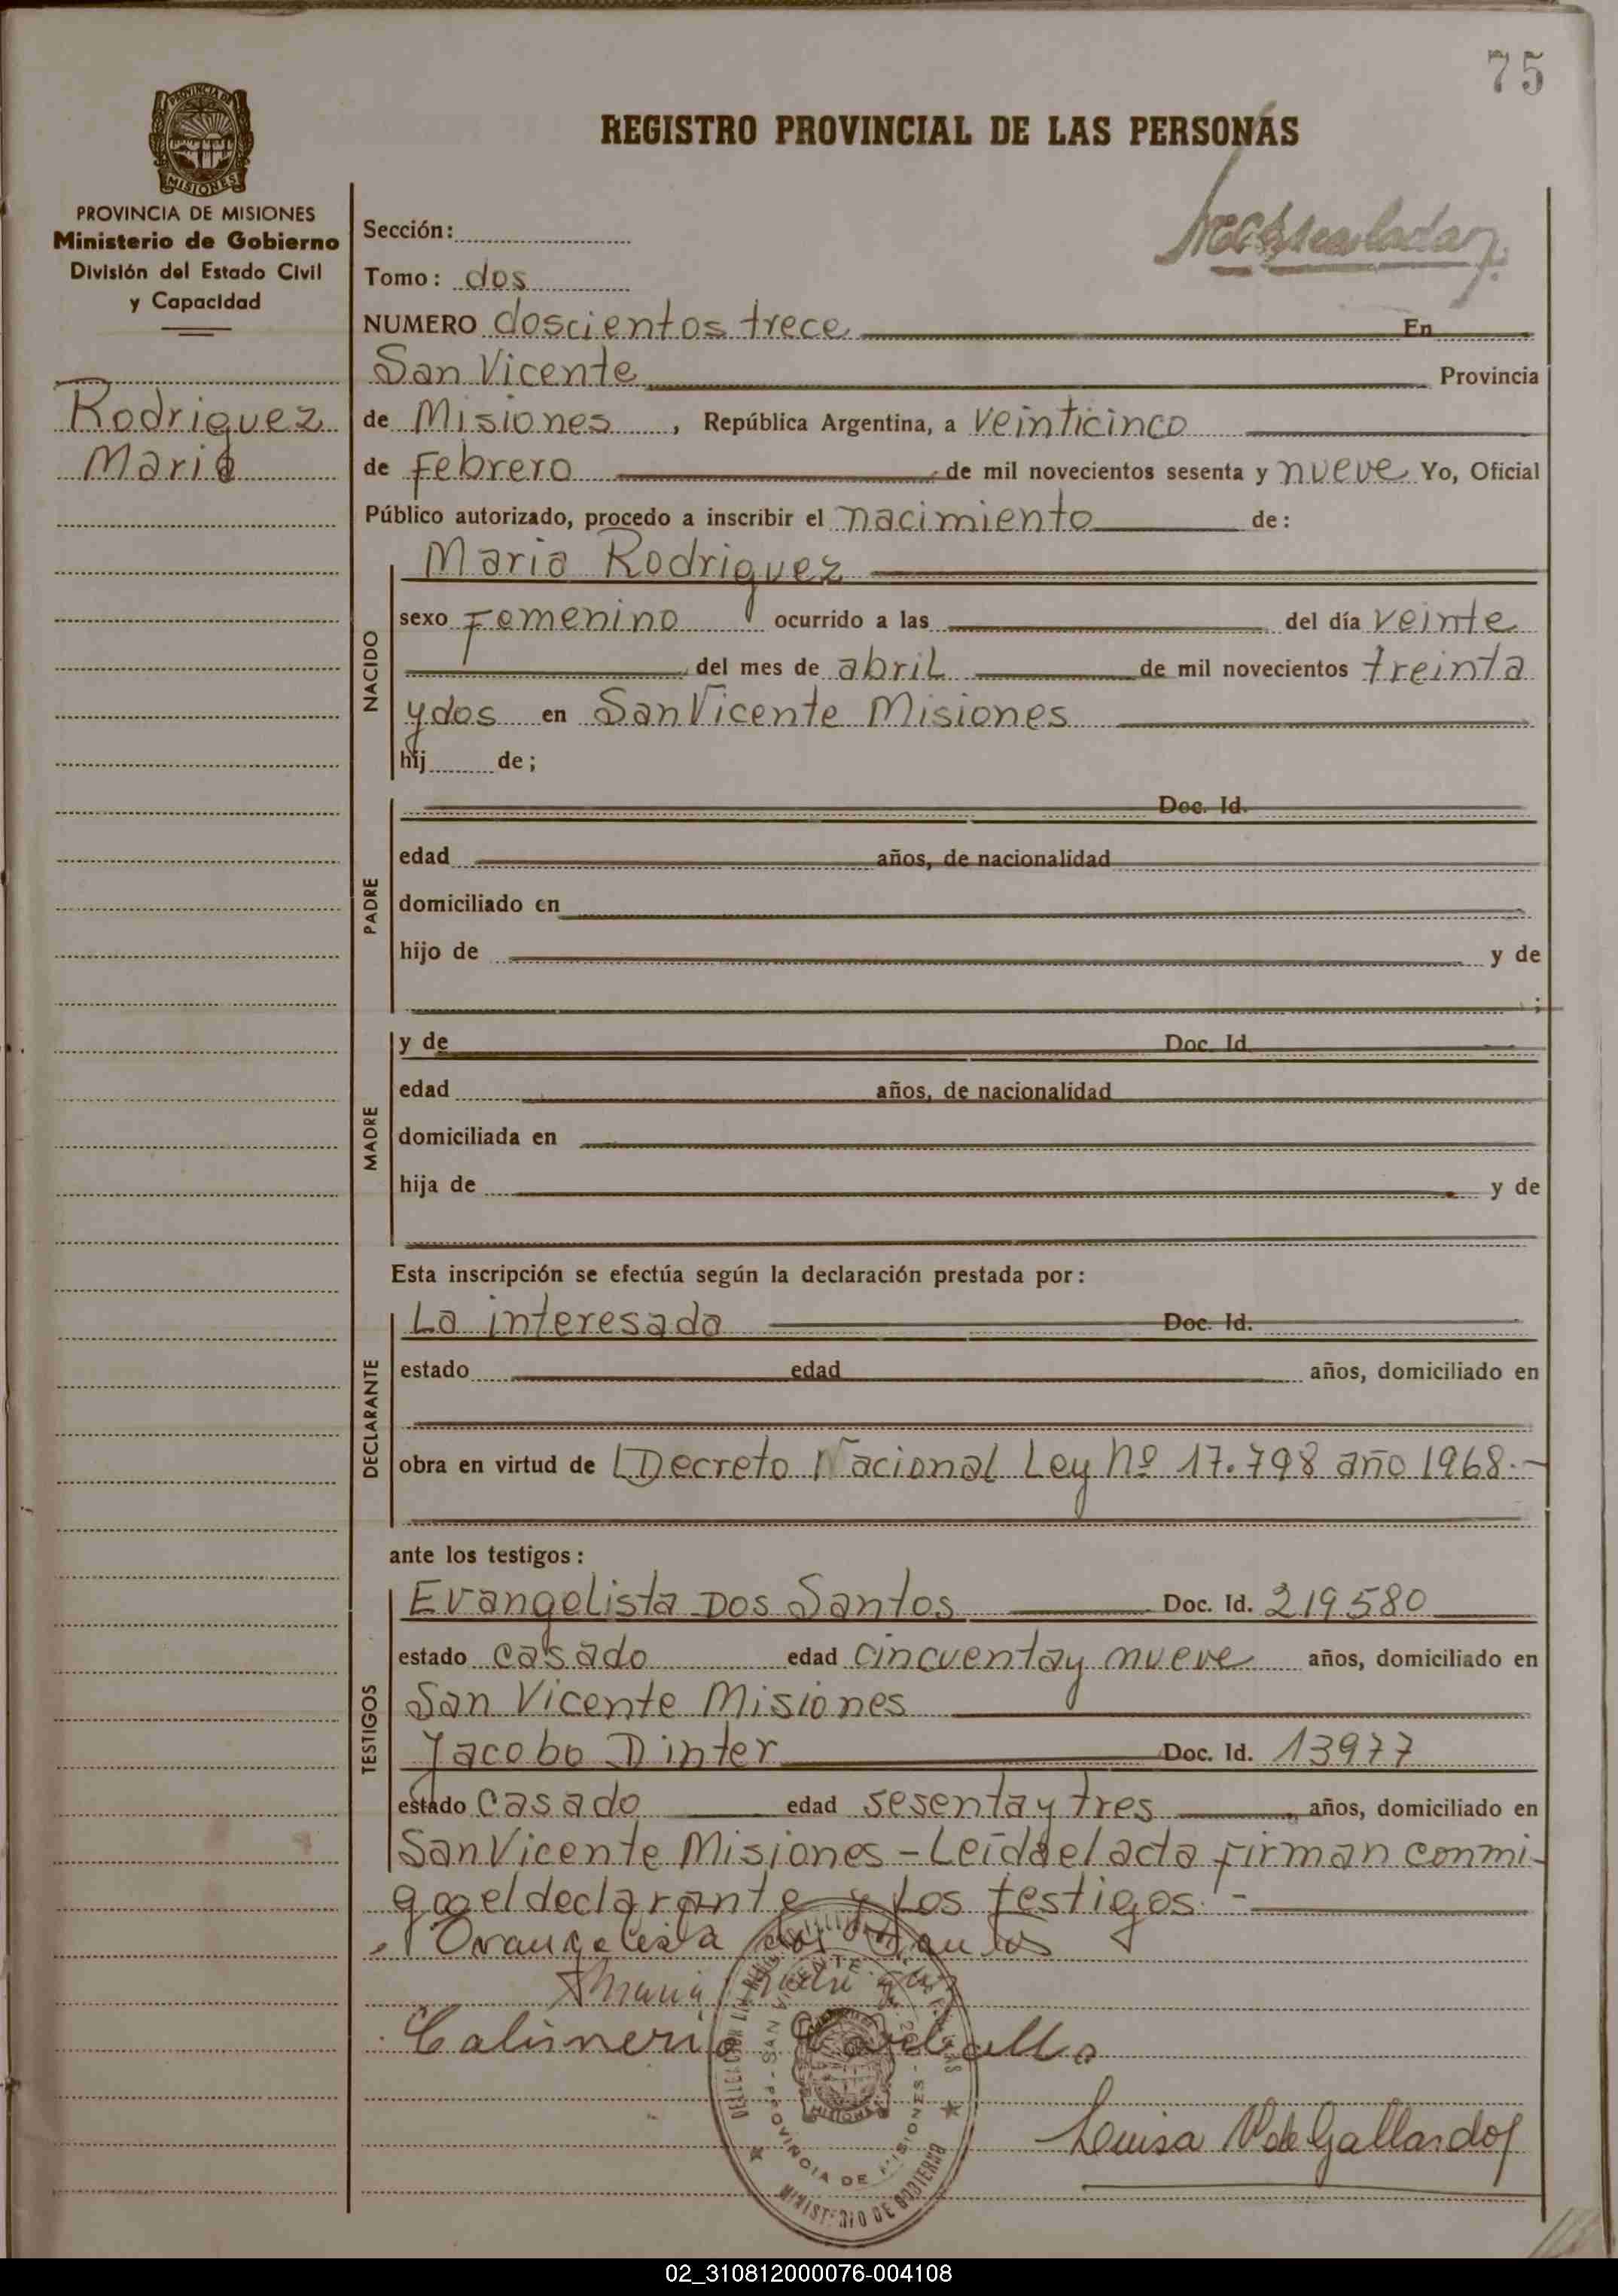 75
REGISTRO PROVINCIAL DE LAS PERSONAS
PROVINCIA DE
MISIONES
PROVINCIA DE MISIONES
Ministerio de Gobierno
División del Estado Civil
y Capacidad
Rodriguez
Maria
Sección:
Tomo: dos
NUMERO doscientos trece En
San Vicente Provincia
de Misiones, República Argentina, a veinticinco
de Febrero de mil novecientos sesenta y nueve Yo, Oficial
Público autorizado, procedo a inscribir el nacimiento de:
NACIDO
Maria Rodriguez
sexo Femenino ocurrido a las del día veinte
del mes de abril de mil novecientos treinta
y dos en San Vicente Misiones
hij de;
PADRE
Doc. Id.
edad años, de nacionalidad
domiciliado en
hijo de y de
;
MADRE
y de Doc. Id
edad años, de nacionalidad
domiciliada en
hija de y de
Esta inscripción se efectúa según la declaración prestada por:
DECLARANTE
La interesada Doc. Id.
estado edad años, domiciliado en
obra en virtud de Decreto Nacional Ley Nº 17.798 año 1968.-
ante los testigos:
TESTIGOS
Evangelista Dos Santos Doc. Id. 219580
estado casado edad cincuenta y nueve años, domiciliado en
San Vicente Misiones
Jacobo Dinter Doc. Id. 13977
estado casado edad sesenta y tres, años, domiciliado en
San Vicente Misiones - Leída el acta firman conmi-
go el declarante y los testigos. -
dos Santos
Maria
SAN VICENTE - PROVINCIA DE MISIONES -
MISIONES
MINISTERIO DE GOBIERNO
Luisa V de Gallardo
02_310812000076-004108